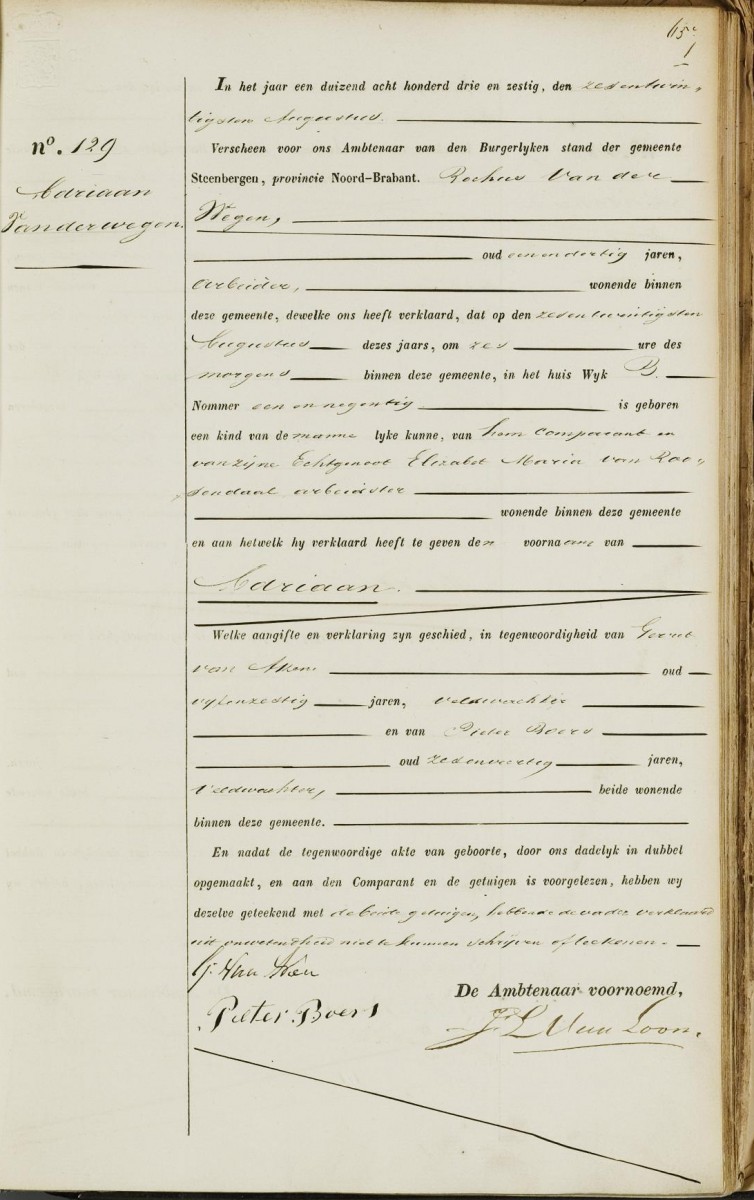 65e
1
nº. 129
Adriaan
Van der wegen.
In het jaar een duizend acht honderd drie en zestig, den zesentwin„
tigsten Augustus.
Verscheen voor ons Ambtenaar van den Burgerlyken stand der gemeente
Steenbergen, provincie Noord-Brabant. Rochus Van der
Wegen,
oud eenendertig jaren,
arbeider, wonende binnen
deze gemeente, dewelke ons heeft verklaard, dat op den zesentwintigsten
Augustus dezes jaars, om zes ure des
morgens binnen deze gemeente, in het huis Wyk B.
Nommer een en negentig is geboren
een kind van de manne lyke kunne, van hem comparant en
van zijne Echtgenoot Elizabet Maria van Roo„
sendaal arbeidster
wonende binnen deze gemeente
en aan hetwelk hy verklaard heeft te geven den voornaam van
Adriaan.
Welke aangifte en verklaring zyn geschied, in tegenwoordigheid van Gerrit
van Aken oud
vyfenzestig jaren, veldwachter
en van Pieter Boers
oud zesenveertig jaren,
veldwachter, beide wonende
binnen deze gemeente.
En nadat de tegenwoordige akte van geboorte, door ons dadelyk in dubbel
opgemaakt, en aan den Comparant en de getuigen is voorgelezen, hebben wy
dezelve geteekend met de beide getuigen, hebbende de vader verklaard
uit onwetendheid niet te kunnen schrijven of teekenen.
G. Van Aken
Pieter Boers
De Ambtenaar voornoemd,
J L Van Loon.